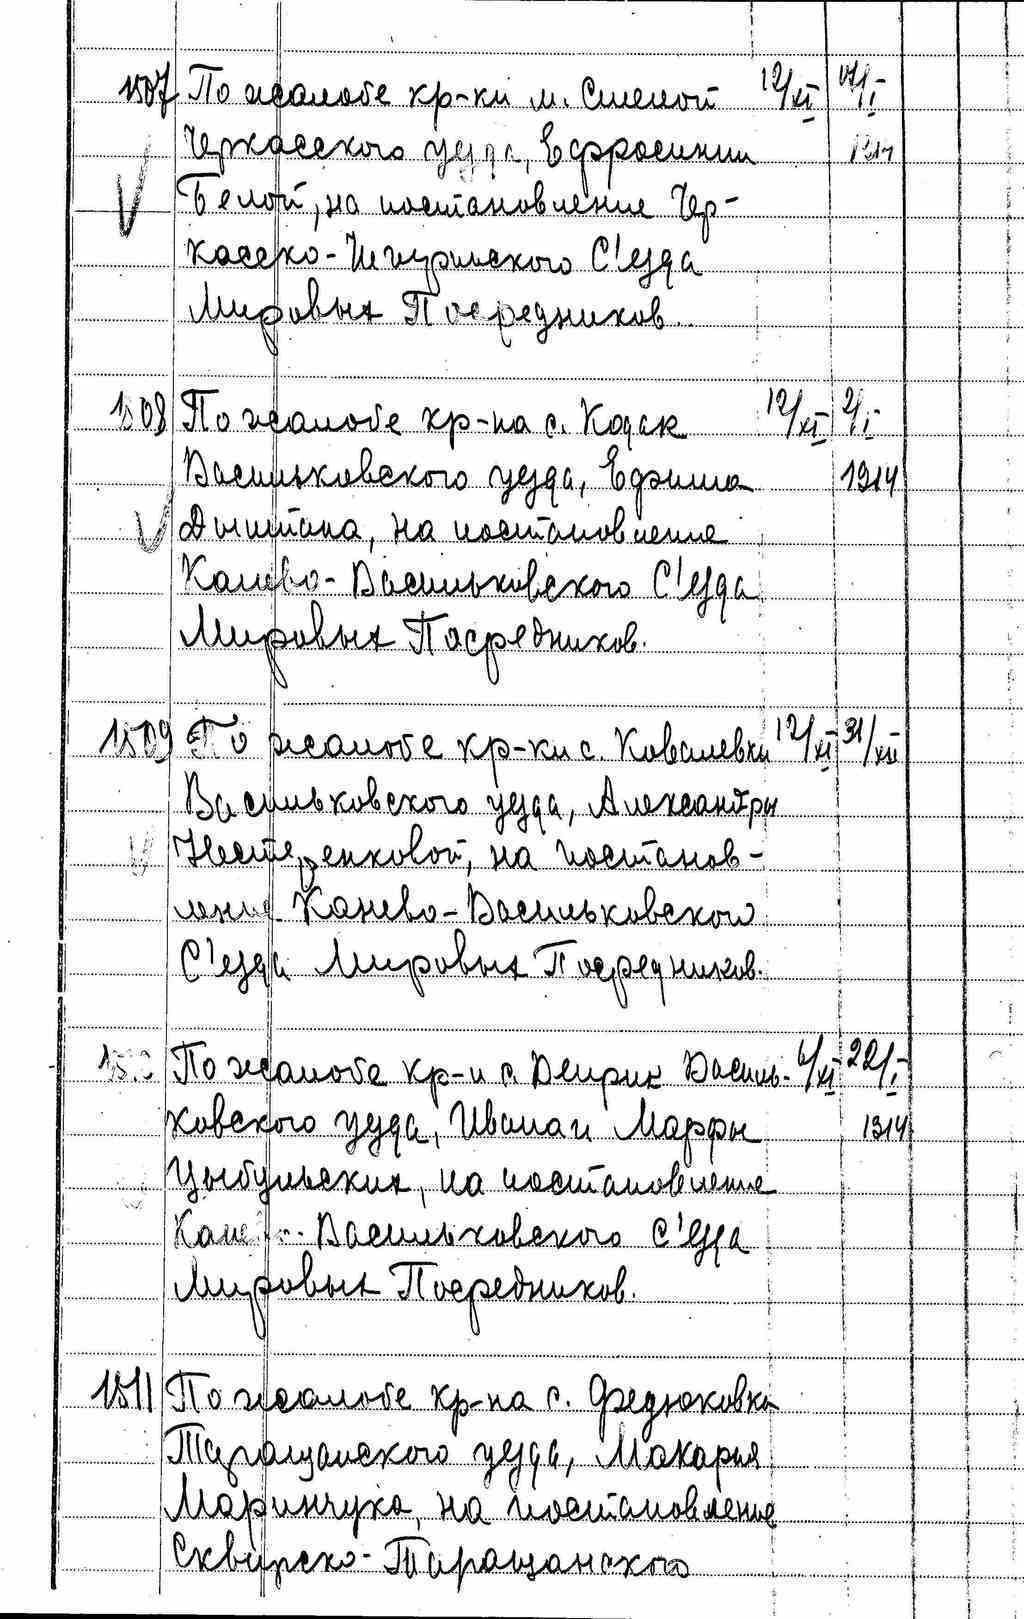 1507 По жалобе кр-ки м. Смелой 12/XI
Черкасского уезда, Ефросинии 1914
Белой, на постановление Чер-
касско-Чигиринского С'езда
Мировых Посредников.
1508 По жалобе кр-на с. Кодак 12/XI 2/I
Васильковского уезда, Ефима 1914
Дыштана, на постановление
Канево-Васильковского С'езда
Мировых Посредников.
1509 По жалобе кр-ки с. Ковалевки 12/XI 31/XII
Васильковского уезда, Александры
Нестеренковой, на постанов-
ление Канево-Васильковского
С'езда Мировых Посредников.
По жалобе кр-н с. Василь- 22/I
ковского уезда, Ивана и Марфы 1914
Цыбульских, на постановление
Канево-Васильковского С'езда
Мировых Посредников.
1511 По жалобе кр-на с. Федюковка
Таращанского уезда, Макарья
Маринчука, на постановление
Сквирско-Таращанского